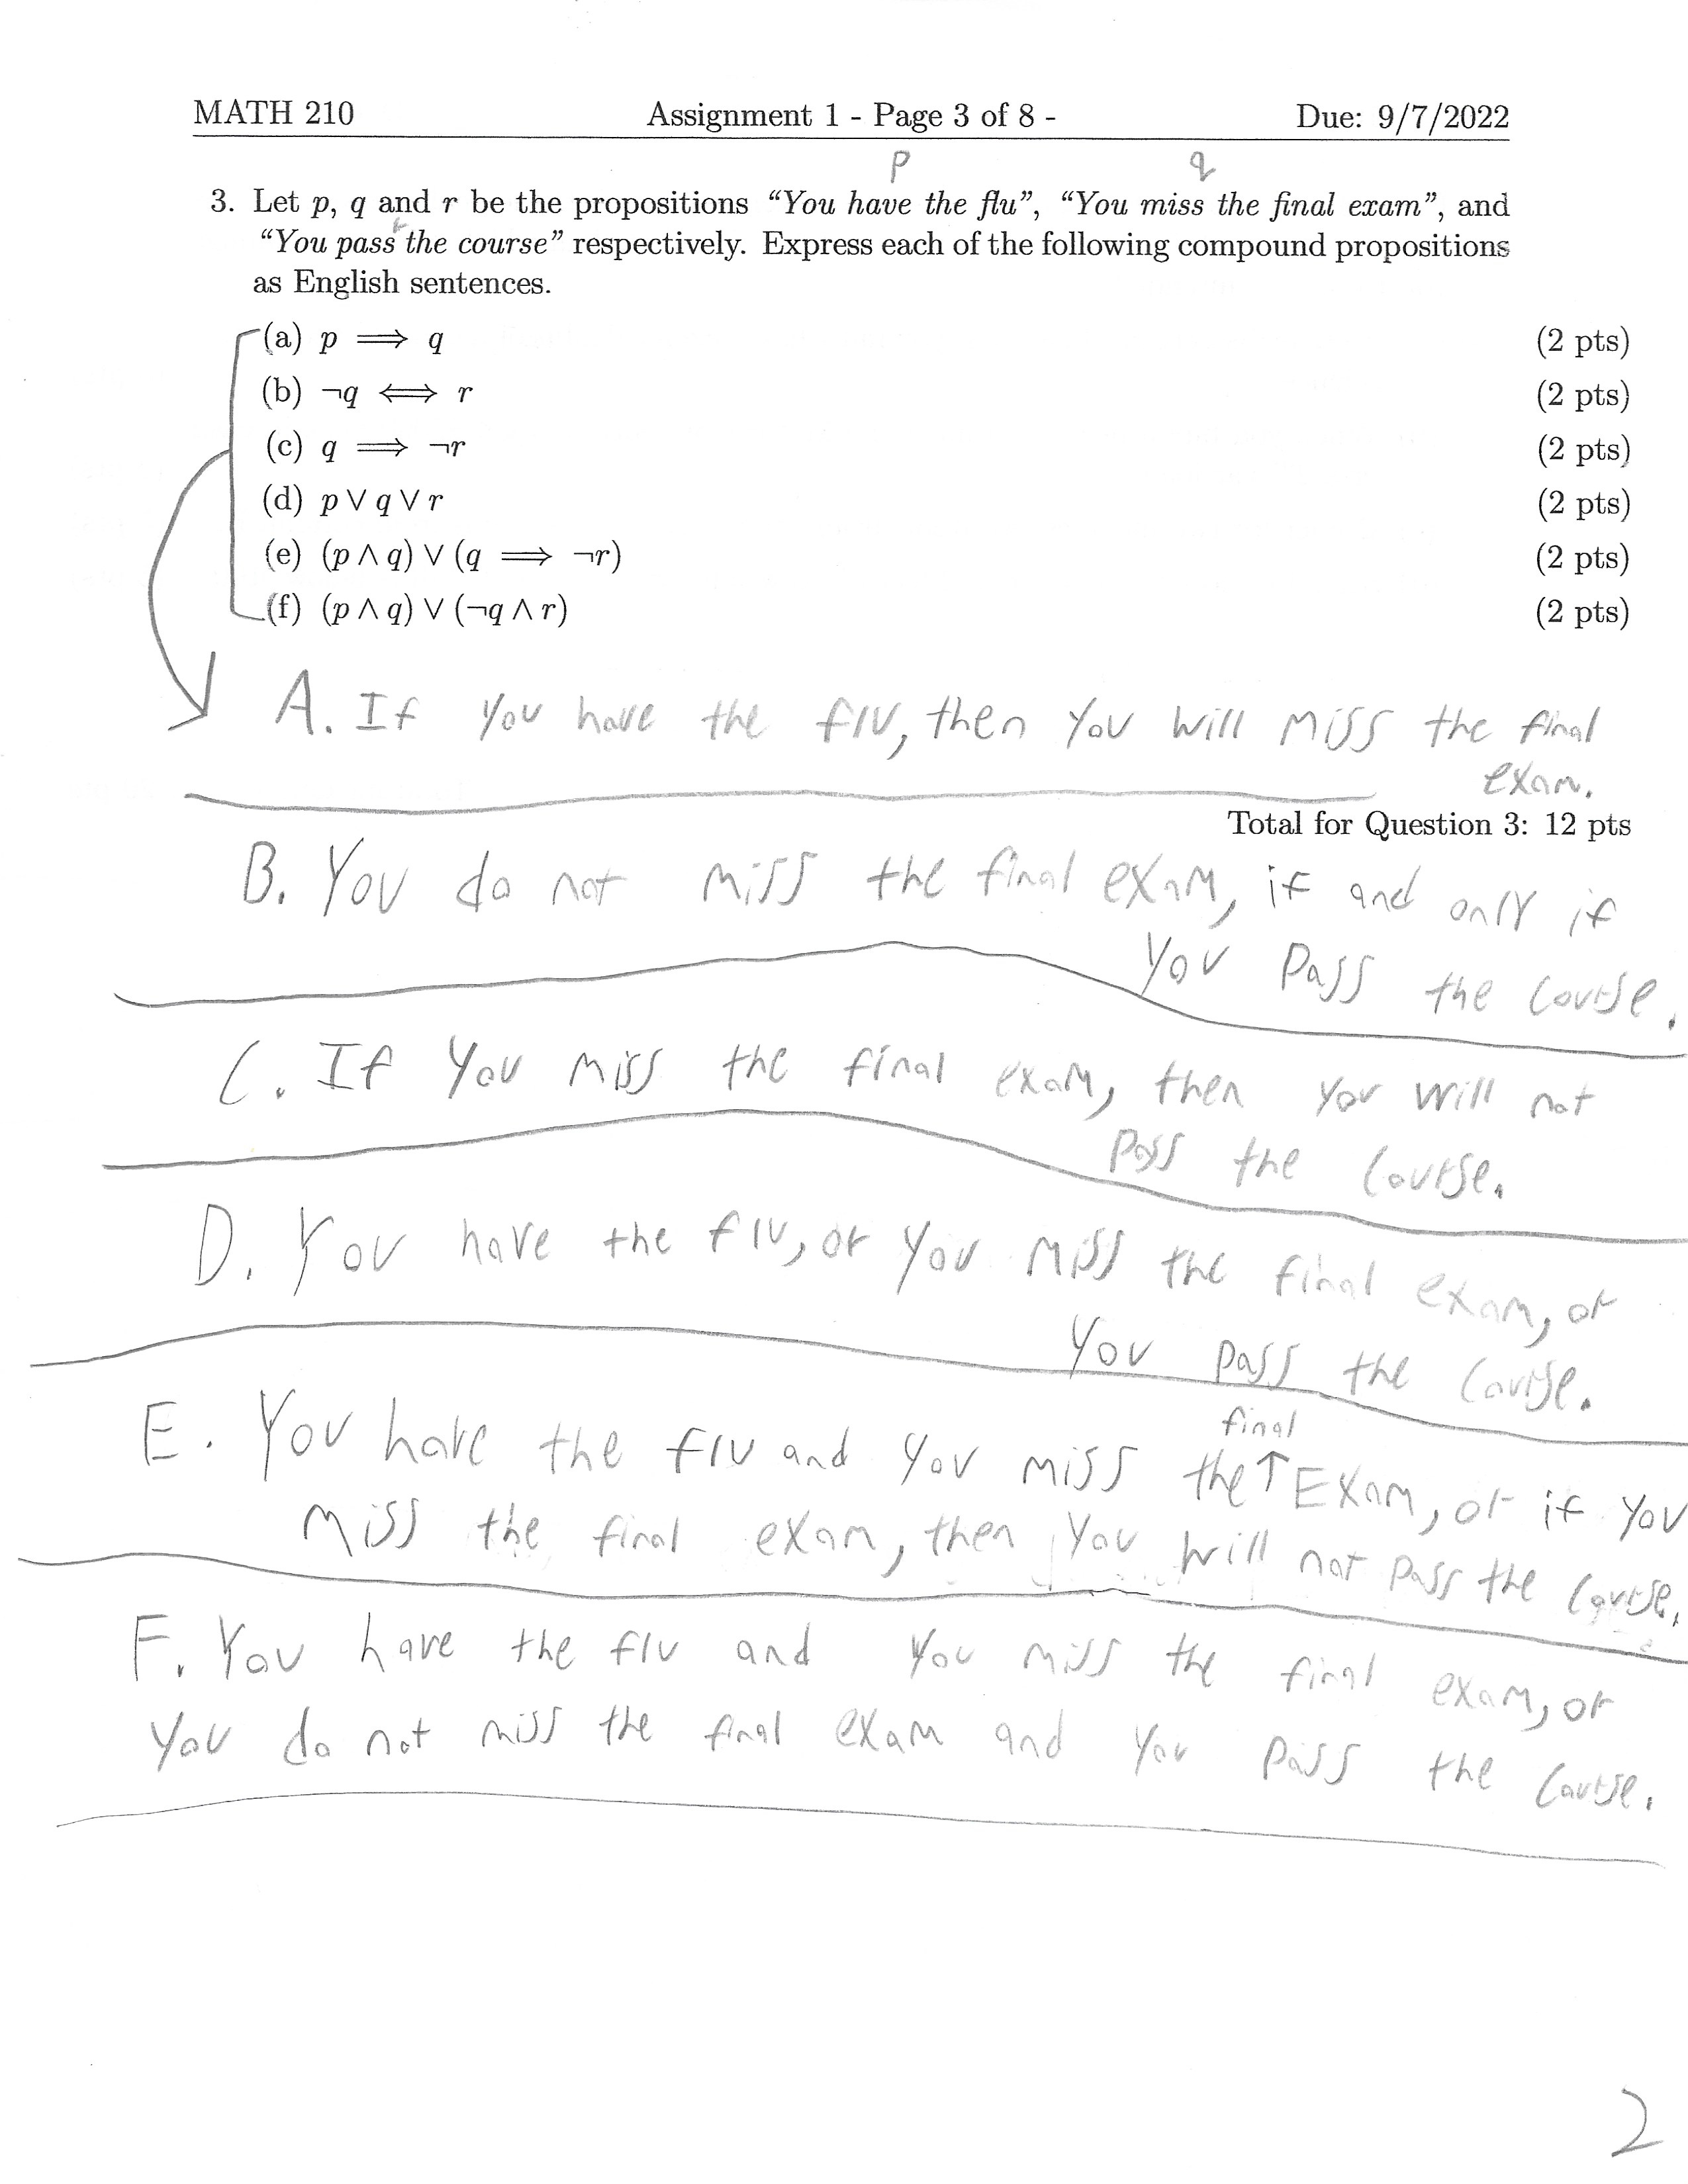 MATH 210 Assignment 1 - Page 3 of 8 - Due: 9/7/2022
p q
3. Let p, q and r be the propositions “You have the flu”, “You miss the final exam”, and
r
“You pass the course” respectively. Express each of the following compound propositions
as English sentences.
(a) p ⟹ q (2 pts)
(b) ¬q ⟺ r (2 pts)
(c) q ⟹ ¬r (2 pts)
(d) p ∨ q ∨ r (2 pts)
(e) (p ∧ q) ∨ (q ⟹ ¬r) (2 pts)
(f) (p ∧ q) ∨ (¬q ∧ r) (2 pts)
A. If you have the flu, then you will miss the final
exam.
Total for Question 3: 12 pts
B. You do not miss the final exam, if and only if
you pass the course.
C. If you miss the final exam, then you will not
pass the course.
D. You have the flu, or you miss the final exam, or
you pass the course.
final
E. You have the flu and you miss the ↑ Exam, or if you
miss the final exam, then you will not pass the course.
F. You have the flu and you miss the final exam, or
you do not miss the final exam and you pass the course.
2